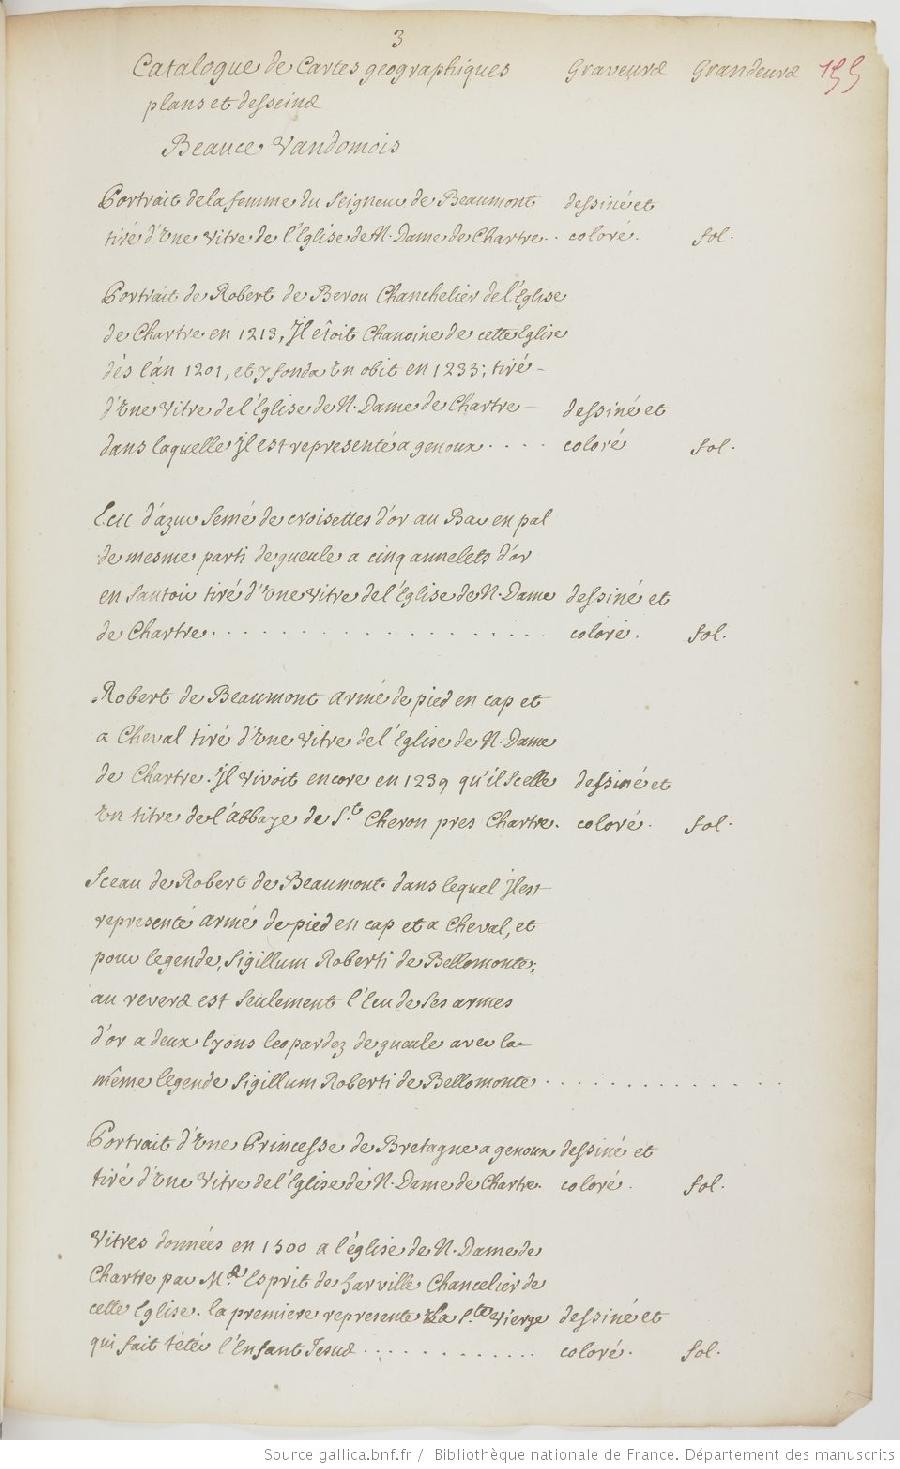 3
Catalogue de Cartes geographiques Graveurs Grandeurs 155
plans et desseins
Beauce Vandomois
Portrait de la femme du Seigneur de Beaumont dessiné et
tiré d'Une Vitre de l'Eglise de N. Dame de Chartre. . coloré. fol.
Portrait de Robert de Berou Chanchelier de l'Eglise
de Chartre en 1213, Jl êtoit Chanoine de cette Eglise
dés l'an 1201, et y fonda Un obit en 1233; tiré
d'Une Vitre de l'Eglise de N. Dame de Chartre dessiné et
dans laquelle Jl est representé a genoux . . . . coloré fol.
Ecu d'azur Semé de croisettes d'or au Bar en pal
de mesme parti de gueule a cinq annelets d'or
en Santoir tiré d'Une Vitre de l'Eglise de N. Dame dessiné et
de Chartre. . . . . . . . . . . . . . . . . . coloré. fol.
Robert de Beaumont armé de pied en cap et
a Cheval tiré d'Une Vitre de l'Eglise de N. Dame
de Chartre. Jl Vivoit encore en 1239 qu'il Scelle dessiné et
Un titre de l'abbaye de St. Cheron pres Chartre. coloré. fol.
Sceau de Robert de Beaumont dans lequel Jl est
representé armé de pied en cap et a Cheval, et
pour legende, Sigillum Roberti de Bellomonte;
au revers est Seulement l'Ecu de Ses armes
d'or a deux lyons leopardez de gueule avec la
même legende Sigillum Roberti de Bellomonte . . . . . . . . . . . . .
Portrait d'Une Princesse de Bretagne a genoux dessiné et
tiré d'Une Vitre de l'Eglise de N. Dame de Chartre. coloré. fol.
Vitres données en 1500 a l'église de N. Dame de
Chartre par Mr. Esprit de harville Chancelier de
cette Eglise. la premiere represente la Ste. Vierge dessiné et
qui fait tétér l'Enfant Jesus . . . . . . . . . . . . coloré. fol.
Source gallica.bnf.fr / Bibliothèque nationale de France. Département des manuscrits